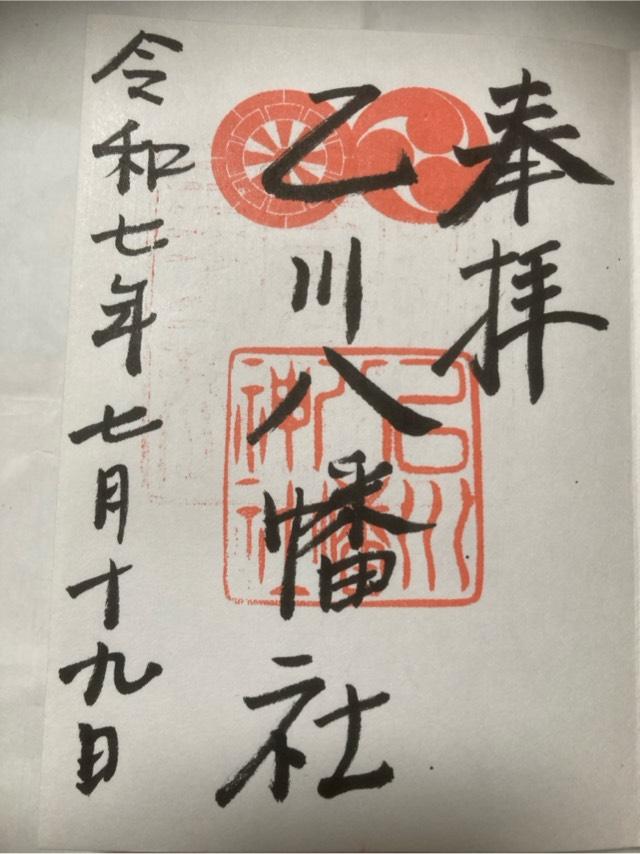 奉拝
乙川八幡社
乙川
八幡
神社
令和七年七月十九日